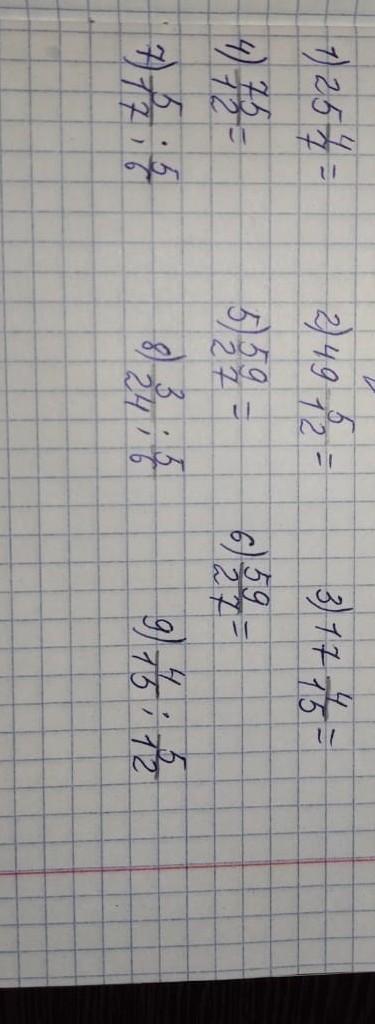 1) 25 4/7 = 2) 49 5/12 = 3) 17 4/15 =
4) 75/12 = 5) 59/27 = 6) 59/27 =
7) 5/17 : 5/6 8) 3/24 : 5/6 9) 4/15 : 5/12